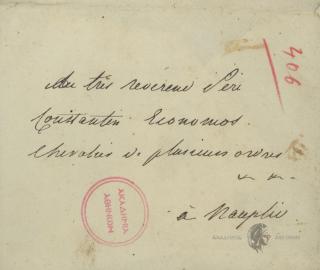 406
Au très révérend Père
Constantin Economos.
Chevalier de plusieurs ordres
à Nauplie
ΑΚΑΔΗΜΙΑ
ΑΘΗΝΩΝ
ΑΚΑΔΗΜΙΑ ΑΘΗΝΩΝ